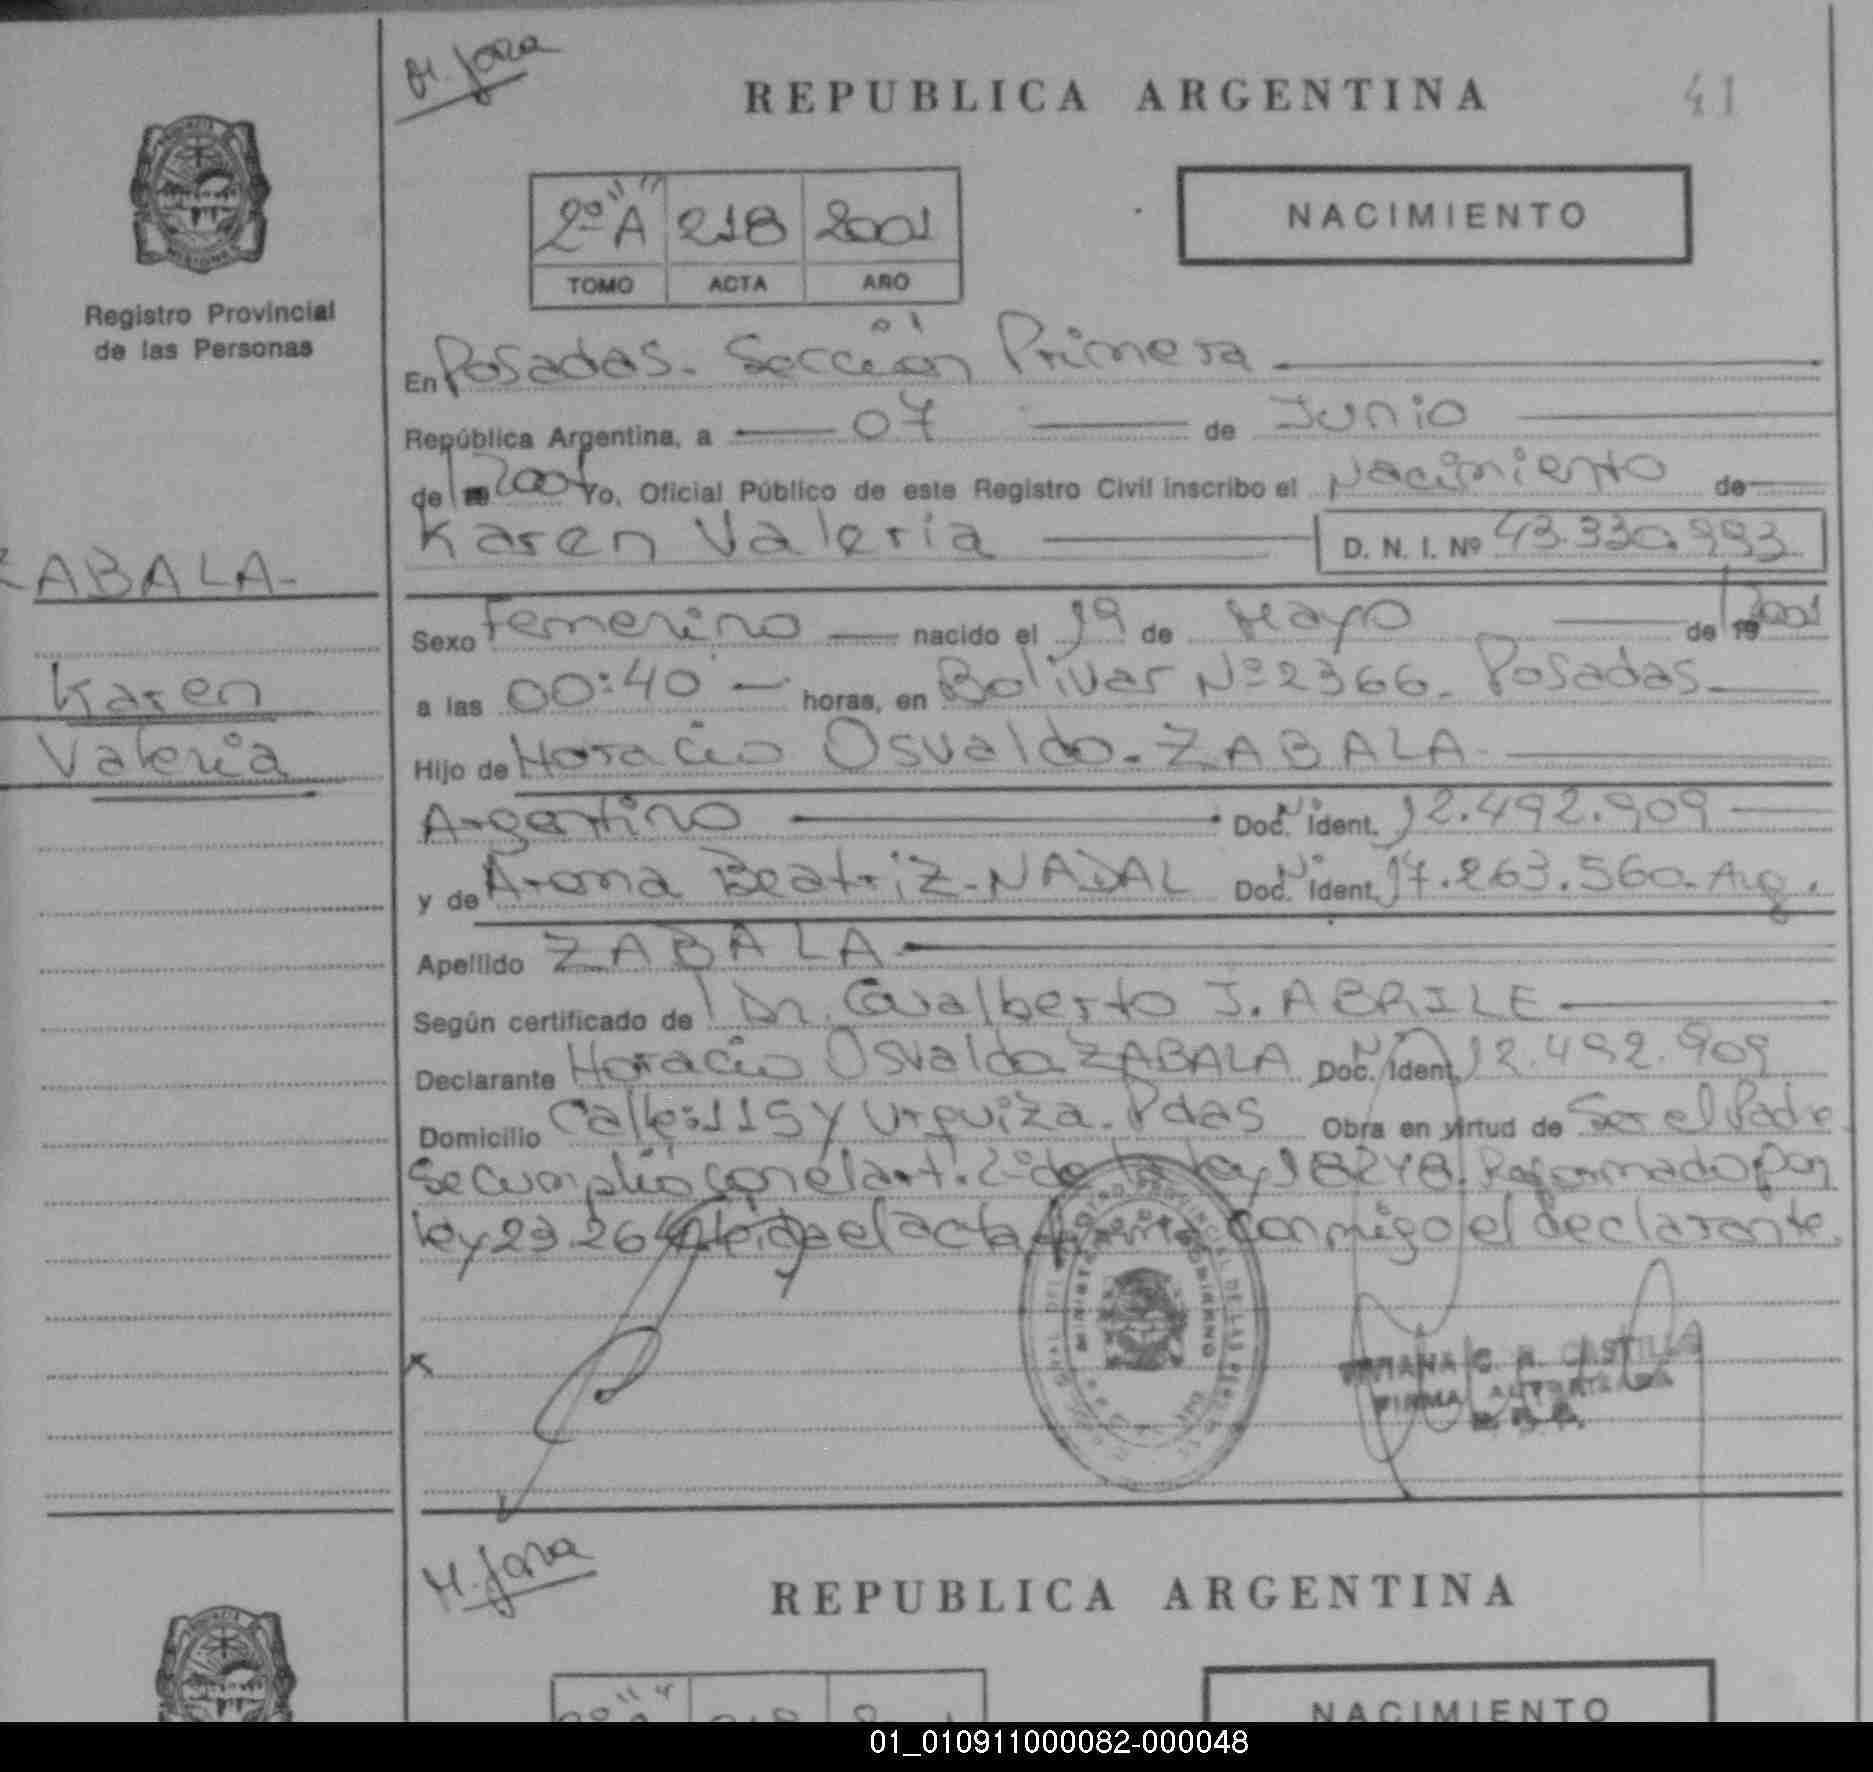 M. Jara
REPUBLICA ARGENTINA
41
2º "A" 218 2001
TOMO ACTA AÑO
NACIMIENTO
Registro Provincial
de las Personas
En Posadas. Sección Primera
República Argentina, a 07 de Junio
de 2001 Yo, Oficial Público de este Registro Civil inscribo el Nacimiento de
Karen Valeria D. N. I. Nº 43.330.993
ZABALA-
Karen
Valeria
Sexo Femenino nacido el 19 de Mayo de 19 2001
a las 00:40 horas, en Bolivar Nº 2366. Posadas
Hijo de Horacio Osvaldo. ZABALA
Argentino Doc. Nº Ident. 12.492.909
y de Aroma Beatriz. NADAL Doc. Nº Ident. 17.263.560. Arg.
Apellido ZABALA
Según certificado de Dr. Gualberto J. ABRILE
Declarante Horacio Osvaldo ZABALA Doc. Nº Ident. 12.492.909
Domicilio Calle: 115 y Urquiza. Pdas Obra en virtud de Ser el Padre
Se Cumplió con el art. 2º de la ley 18248. Reformado por
ley 23.264. Leída el acta firma conmigo el declarante.
C. R. CASTILLO
FIRMA AUTORIZADA
M. Jara
REPUBLICA ARGENTINA
NACIMIENTO
01_010911000082-000048